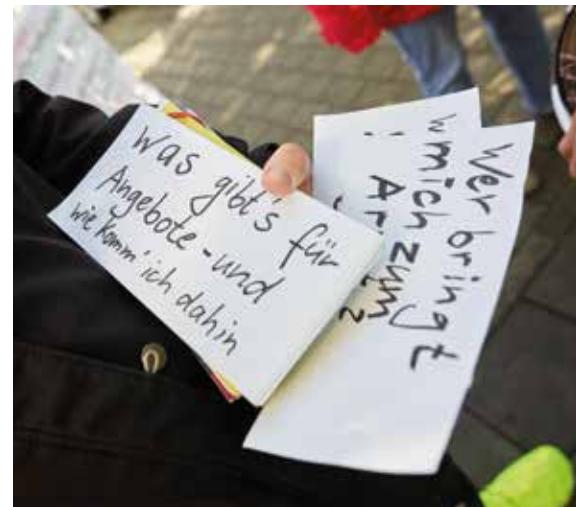 Was gibt's für
Angebote - und
wie komm' ich dahin
Wer bringt
mich zum